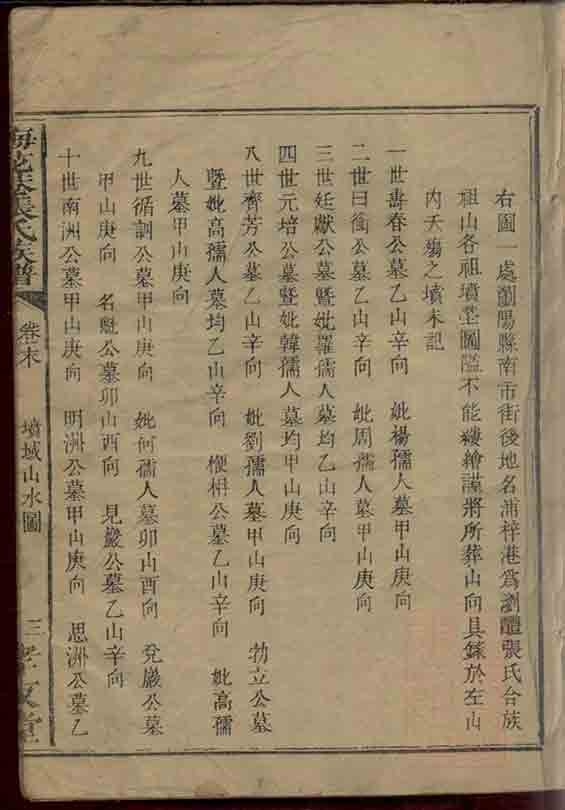 右圖一處瀏陽縣南市街後地名浦梓港爲瀏醴張氏合族
祖山各祖墳塋圖隘不能縷繪謹將所葬山向具錄於左山
內夭殤之墳未記
一世壽春公墓乙山辛向 妣楊孺人墓甲山庚向
二世曰衡公墓乙山辛向 妣周孺人墓甲山庚向
三世廷獻公墓暨妣羅孺人墓均乙山辛向
四世元培公墓暨妣韓孺人墓均甲山庚向
八世齊芳公墓乙山辛向 妣劉孺人墓甲山庚向 勃立公墓
暨妣高孺人墓均乙山辛向 梗枏公墓乙山辛向 妣高孺
人墓甲山庚向
九世循訓公墓甲山庚向 妣何孺人墓卯山酉向 兌巖公墓
甲山庚向 名魁公墓卯山酉向 見巖公墓乙山辛向
十世南洲公墓甲山庚向 明洲公墓甲山庚向 思洲公墓乙
張氏族譜 卷末 墳域山水圖 三 孝友堂